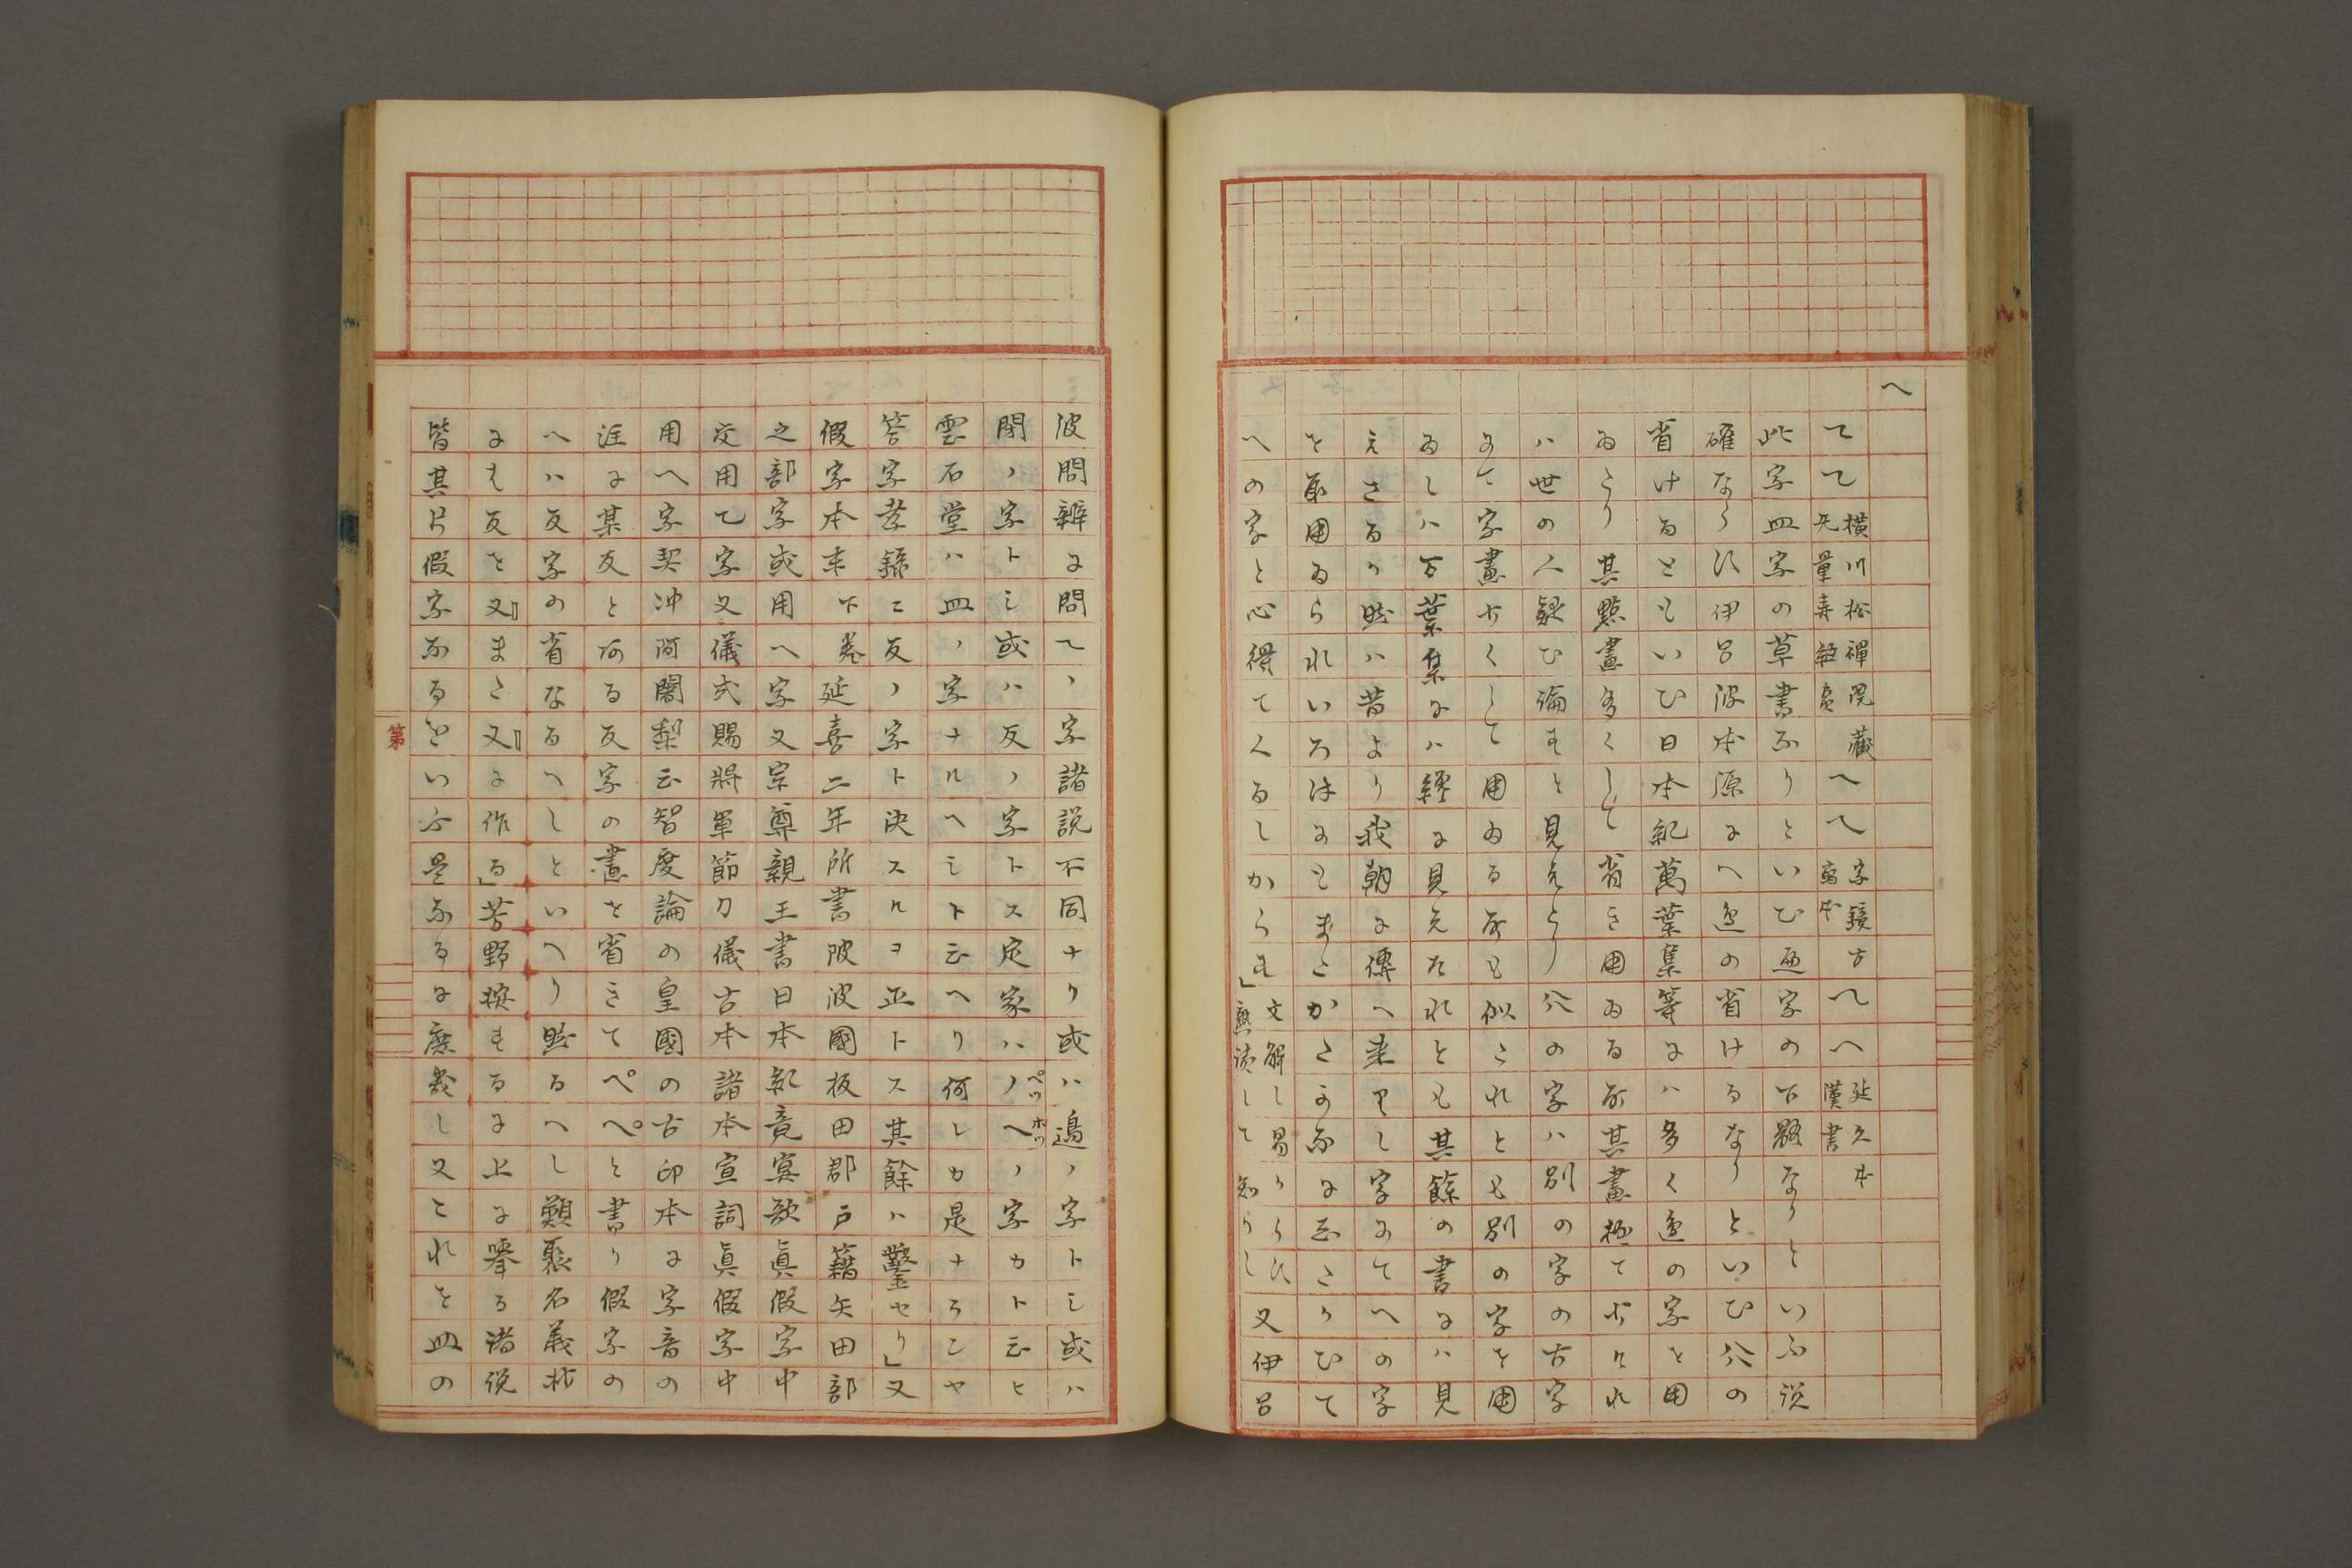 へ
て て 横川松禅院蔵 无量寿経賛 へ て 字鏡古寫本 へ へ 延久本漢書
此字皿字の草書なりといひ𢌞字の古體なりといふ説
確ならす伊呂波本源にへ邊の省けるなりといひ㕣の
省けるともいひ日本紀萬葉集等にハ多く邊の字を用
ゐたり其點畫多くして省き用ゐる所其畫極て少けれ
ハ世の人疑ひ論すと見えたり㕣の字ハ別の字の古字
にて字畫少くして用ゐる所も似たれとも別の字を用
ゐしハ万葉集にハ經に見えたれとも其餘の書にハ見
えさるか然ハ昔より我朝に傳へ来りし字にてへの字
を取用ゐられいろはにもまたかたかなにもしたかひて
への字と心得て人るしからす」文解し易からす熟讀して知るへし又伊呂
波問辨に問てヽ字諸説不同ナリ或ハ邊ノ字トシ或ハ
閉ノ字トシ或ハ反ノ字トス定家ハノヘノ字カト云ヒ
雲石堂ハ皿ノ字ナルヘシト云ヘリ何レカ是ナランヤ
答字孝録ニ反ノ字ト決スルヲ正トス其餘ハ鑿セリ」又
假字本末下巻延喜二年所書阿波國板田郡戸籍矢田部
之部字或用へ字又宗尊親王書日本紀竟宴歌眞假字中
交用乙字又儀式賜將軍節刀儀古本諸本宣詞眞假字中
用へ字契冲阿闍梨云智度論の皇國の古印本に字音の
注に某反とある反字の畫を省きてペぺと書り假字の
へハ反字の省なるへしといへり然るへし類聚名義抄
にも反を又またヌに作る」芳野按するに上に擧る諸説
皆其片假字なるをいふ是なるに庶幾し又これを皿の
第